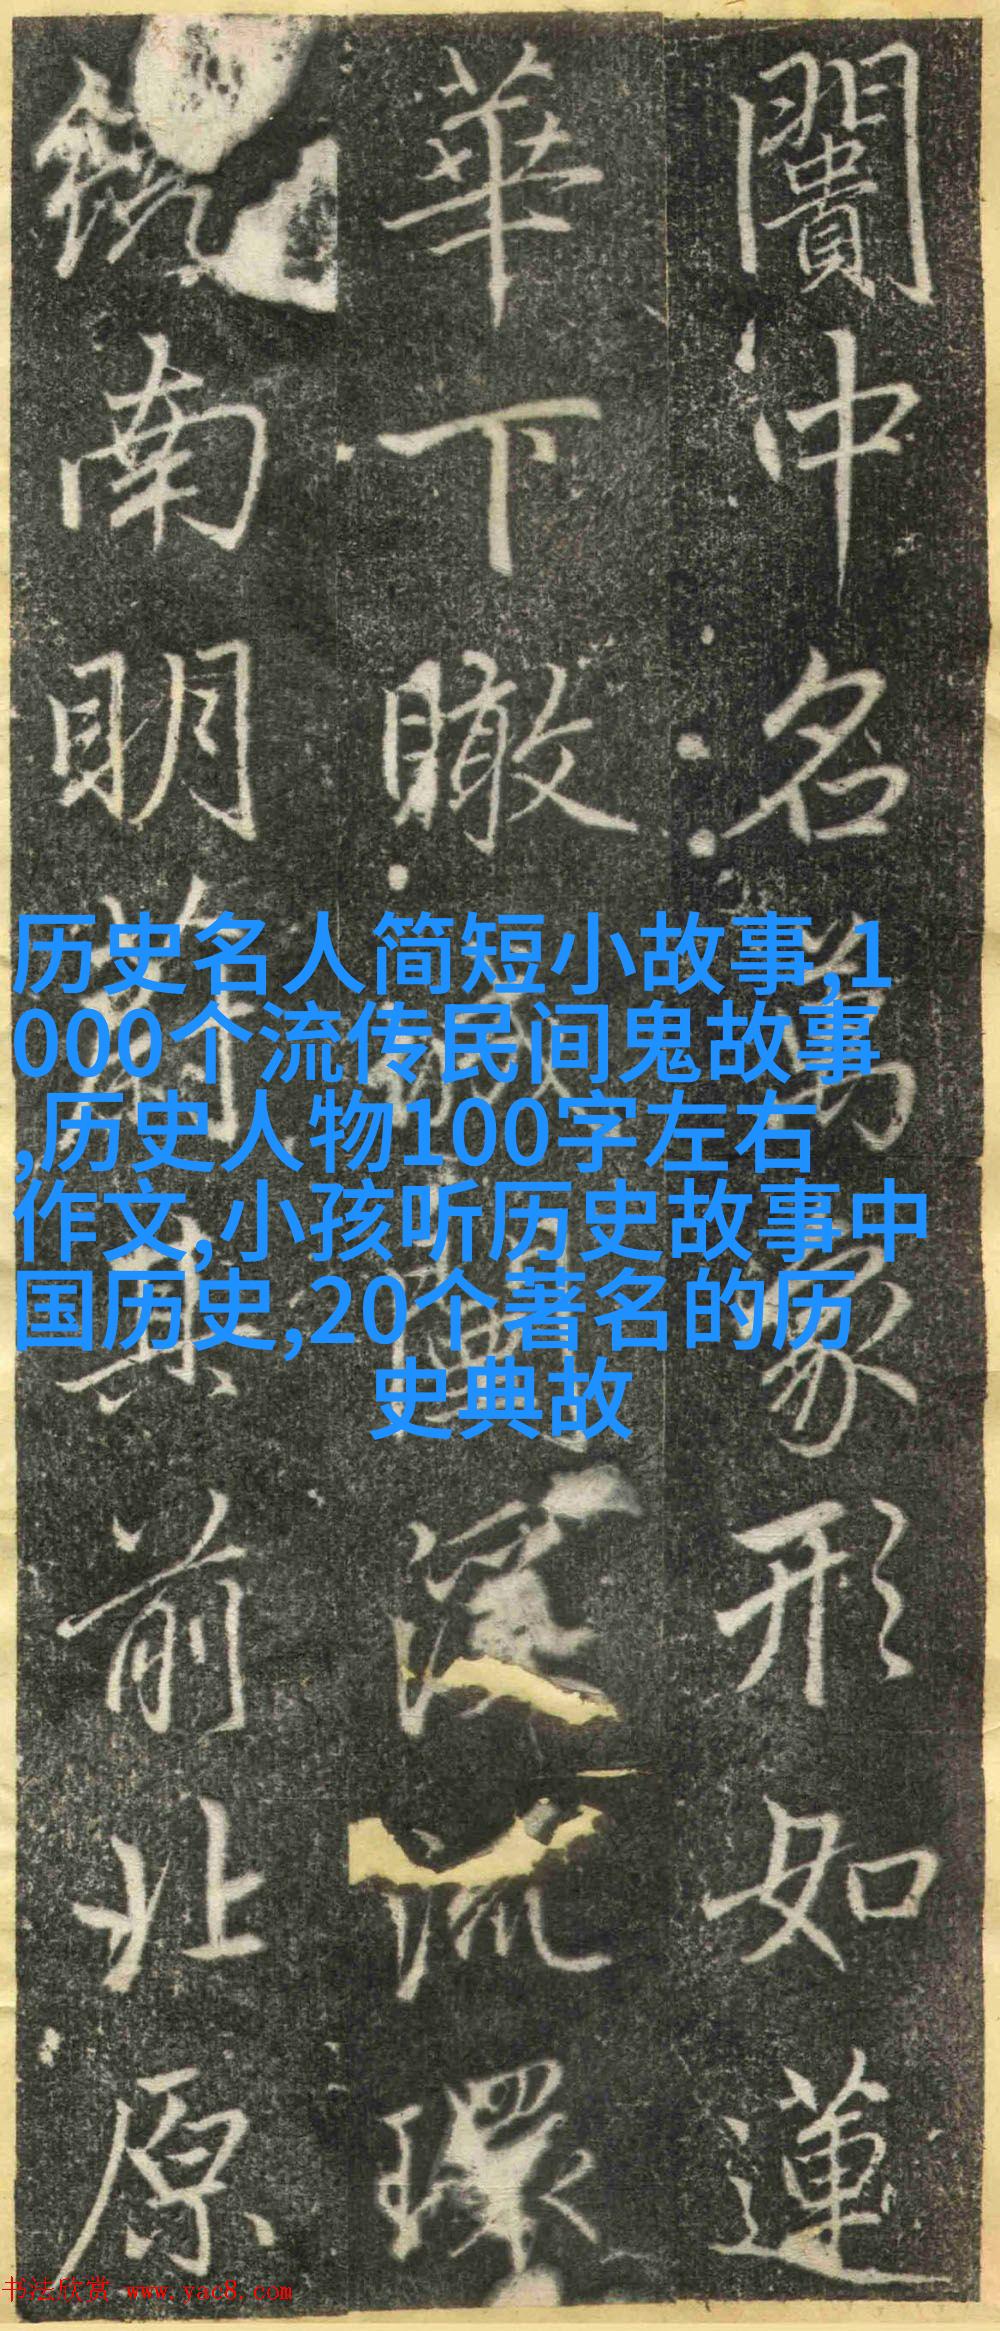 闠中名萬象形如蓮
華下瞰深流環
南明其前北原
历史名人简短小故事,1
000个流传民间鬼故事
,历史人物100字左右
作文,小孩听历史故事中
国历史,20个著名的历
史典故
书法欣赏 www.yac8.com